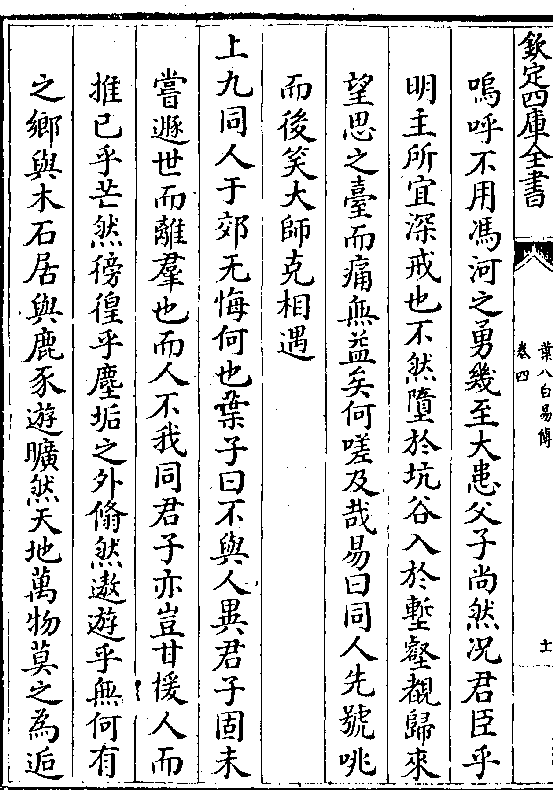 欽定四庫全書
葉八白易傳
卷四
士
嗚呼不用馮河之勇幾至大患父子尚然况君臣乎
明主所宜深戒也不然墮於坑谷入於塹壑覩歸來
望思之臺而痛無益矣何嗟及哉易曰同人先號咷
而後笑大師克相遇
上九同人于郊无悔何也葉子曰不與人異君子固未
嘗遯世而離羣也而人不我同君子亦豈甘援人而
推已乎芒然徬徨乎塵垢之外翛然遨遊乎無何有
之鄉與木石居與鹿豕遊曠然天地萬物莫之為逅